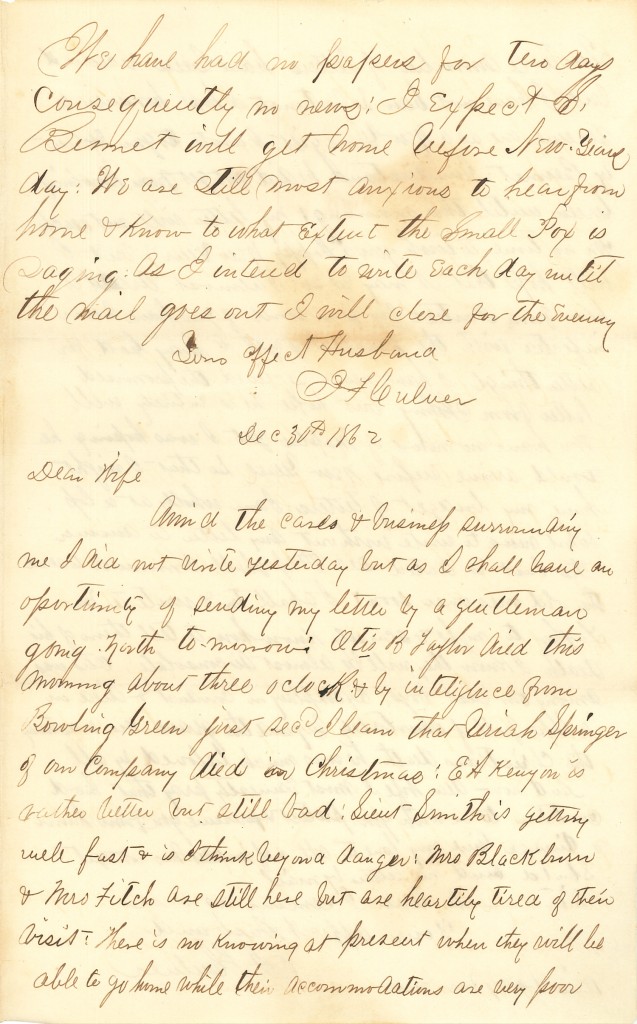 We have had no papers for ten days
Consequently no news: I Expect S,
Bennet will get home before New-Years
day: We are still most anxious to hear from
home & Know to what Extent the Small Pox is
Raging: As I intend to write Each day until
the mail goes out I will close for the Evening
Your affect Husband
J F Culver
Dec 30th 1862
Dear Wife
Amid the cares & business surrounding
me I did not write yesterday but as I shall have an
oportunity of sending my letter by a gentleman
going North to-morrow: Otis B Taylor died this
morning about three oclock & by inteligence from
Bowling Green just recd I learn that Uriah Springer
of our Company died on Christmas: E A Kenyon is
rather better but still bad: Lieut Smith is getting
well fast & is I think beyond danger: Mrs Blackburn
& Mrs Fitch are still here but are heartily tired of their
visit: There is no Knowing at present when they will be
able to go home while their accommodations are very poor